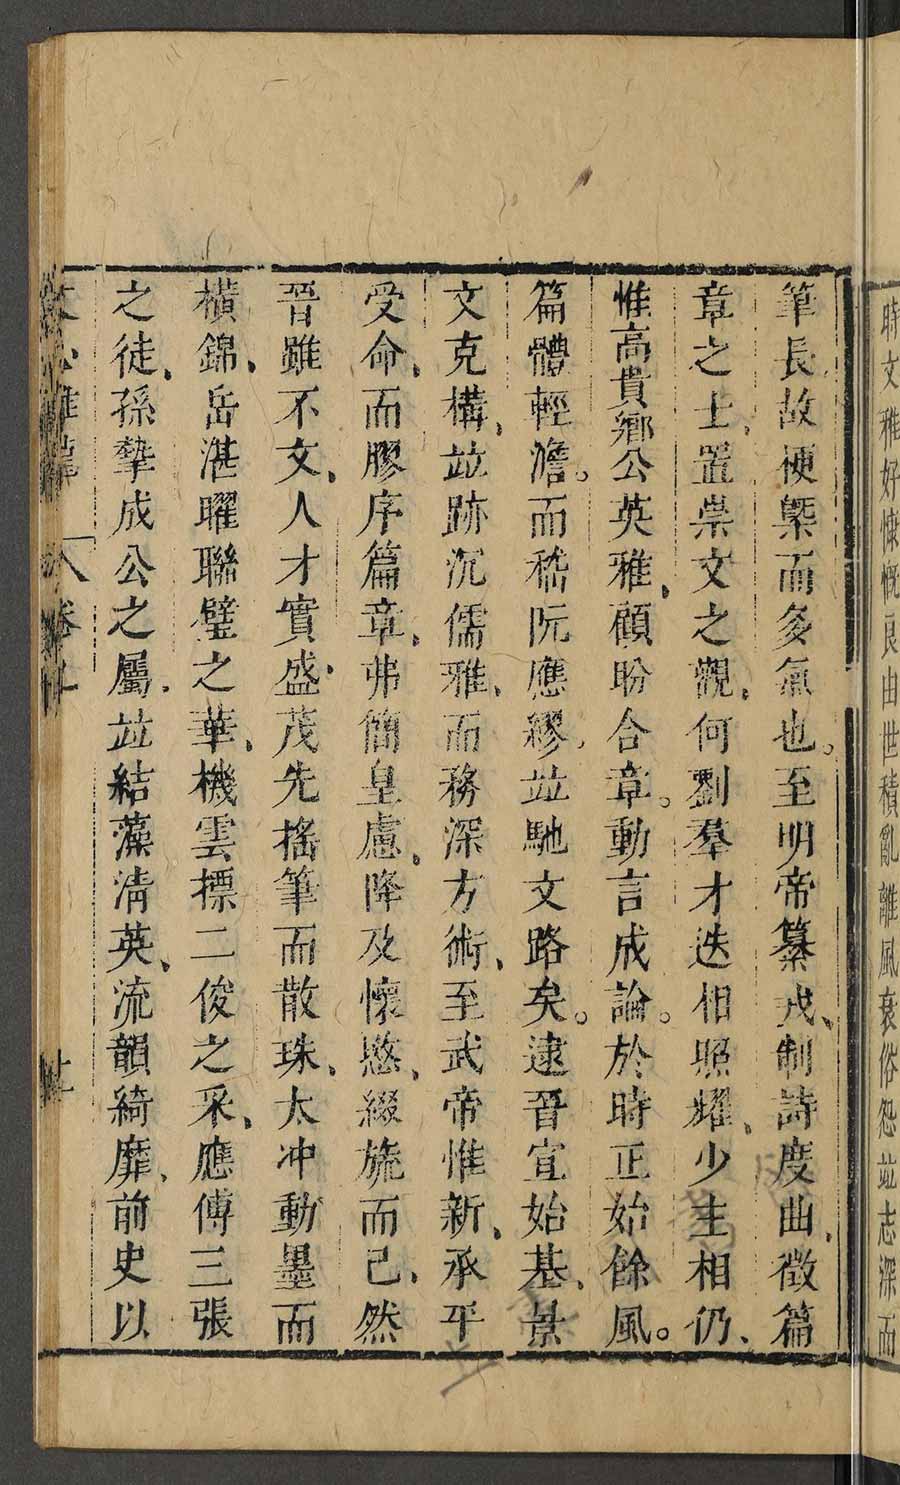 時文雅好慷慨良由世積亂離風衰俗怨竝志深而
筆長故梗槩而多氣也。至明帝纂戎、制詩度曲、徵篇
章之士、置崇文之觀、何劉羣才迭相照耀、少主相仍、
惟高貴鄉公英雅、顧盼合章。動言成論。於時正始餘風。
篇體輕澹。而嵇阮應繆、竝馳文路矣。逮晉宣始基、景
文克構、竝跡沉儒雅、而務深方術、至武帝惟新、承平
受命、而膠序篇章、弗簡皇慮、降及懷愍、綴旒而已、然
晉雖不文、人才實盛、茂先搖筆而散珠、太冲動墨而
橫錦、岳湛曜聯璧之華、機雲摽二俊之采、應傅三張
之徒、孫摯成公之屬、竝結藻清英、流韻綺靡、前史以
文心雕龍 卷 廿